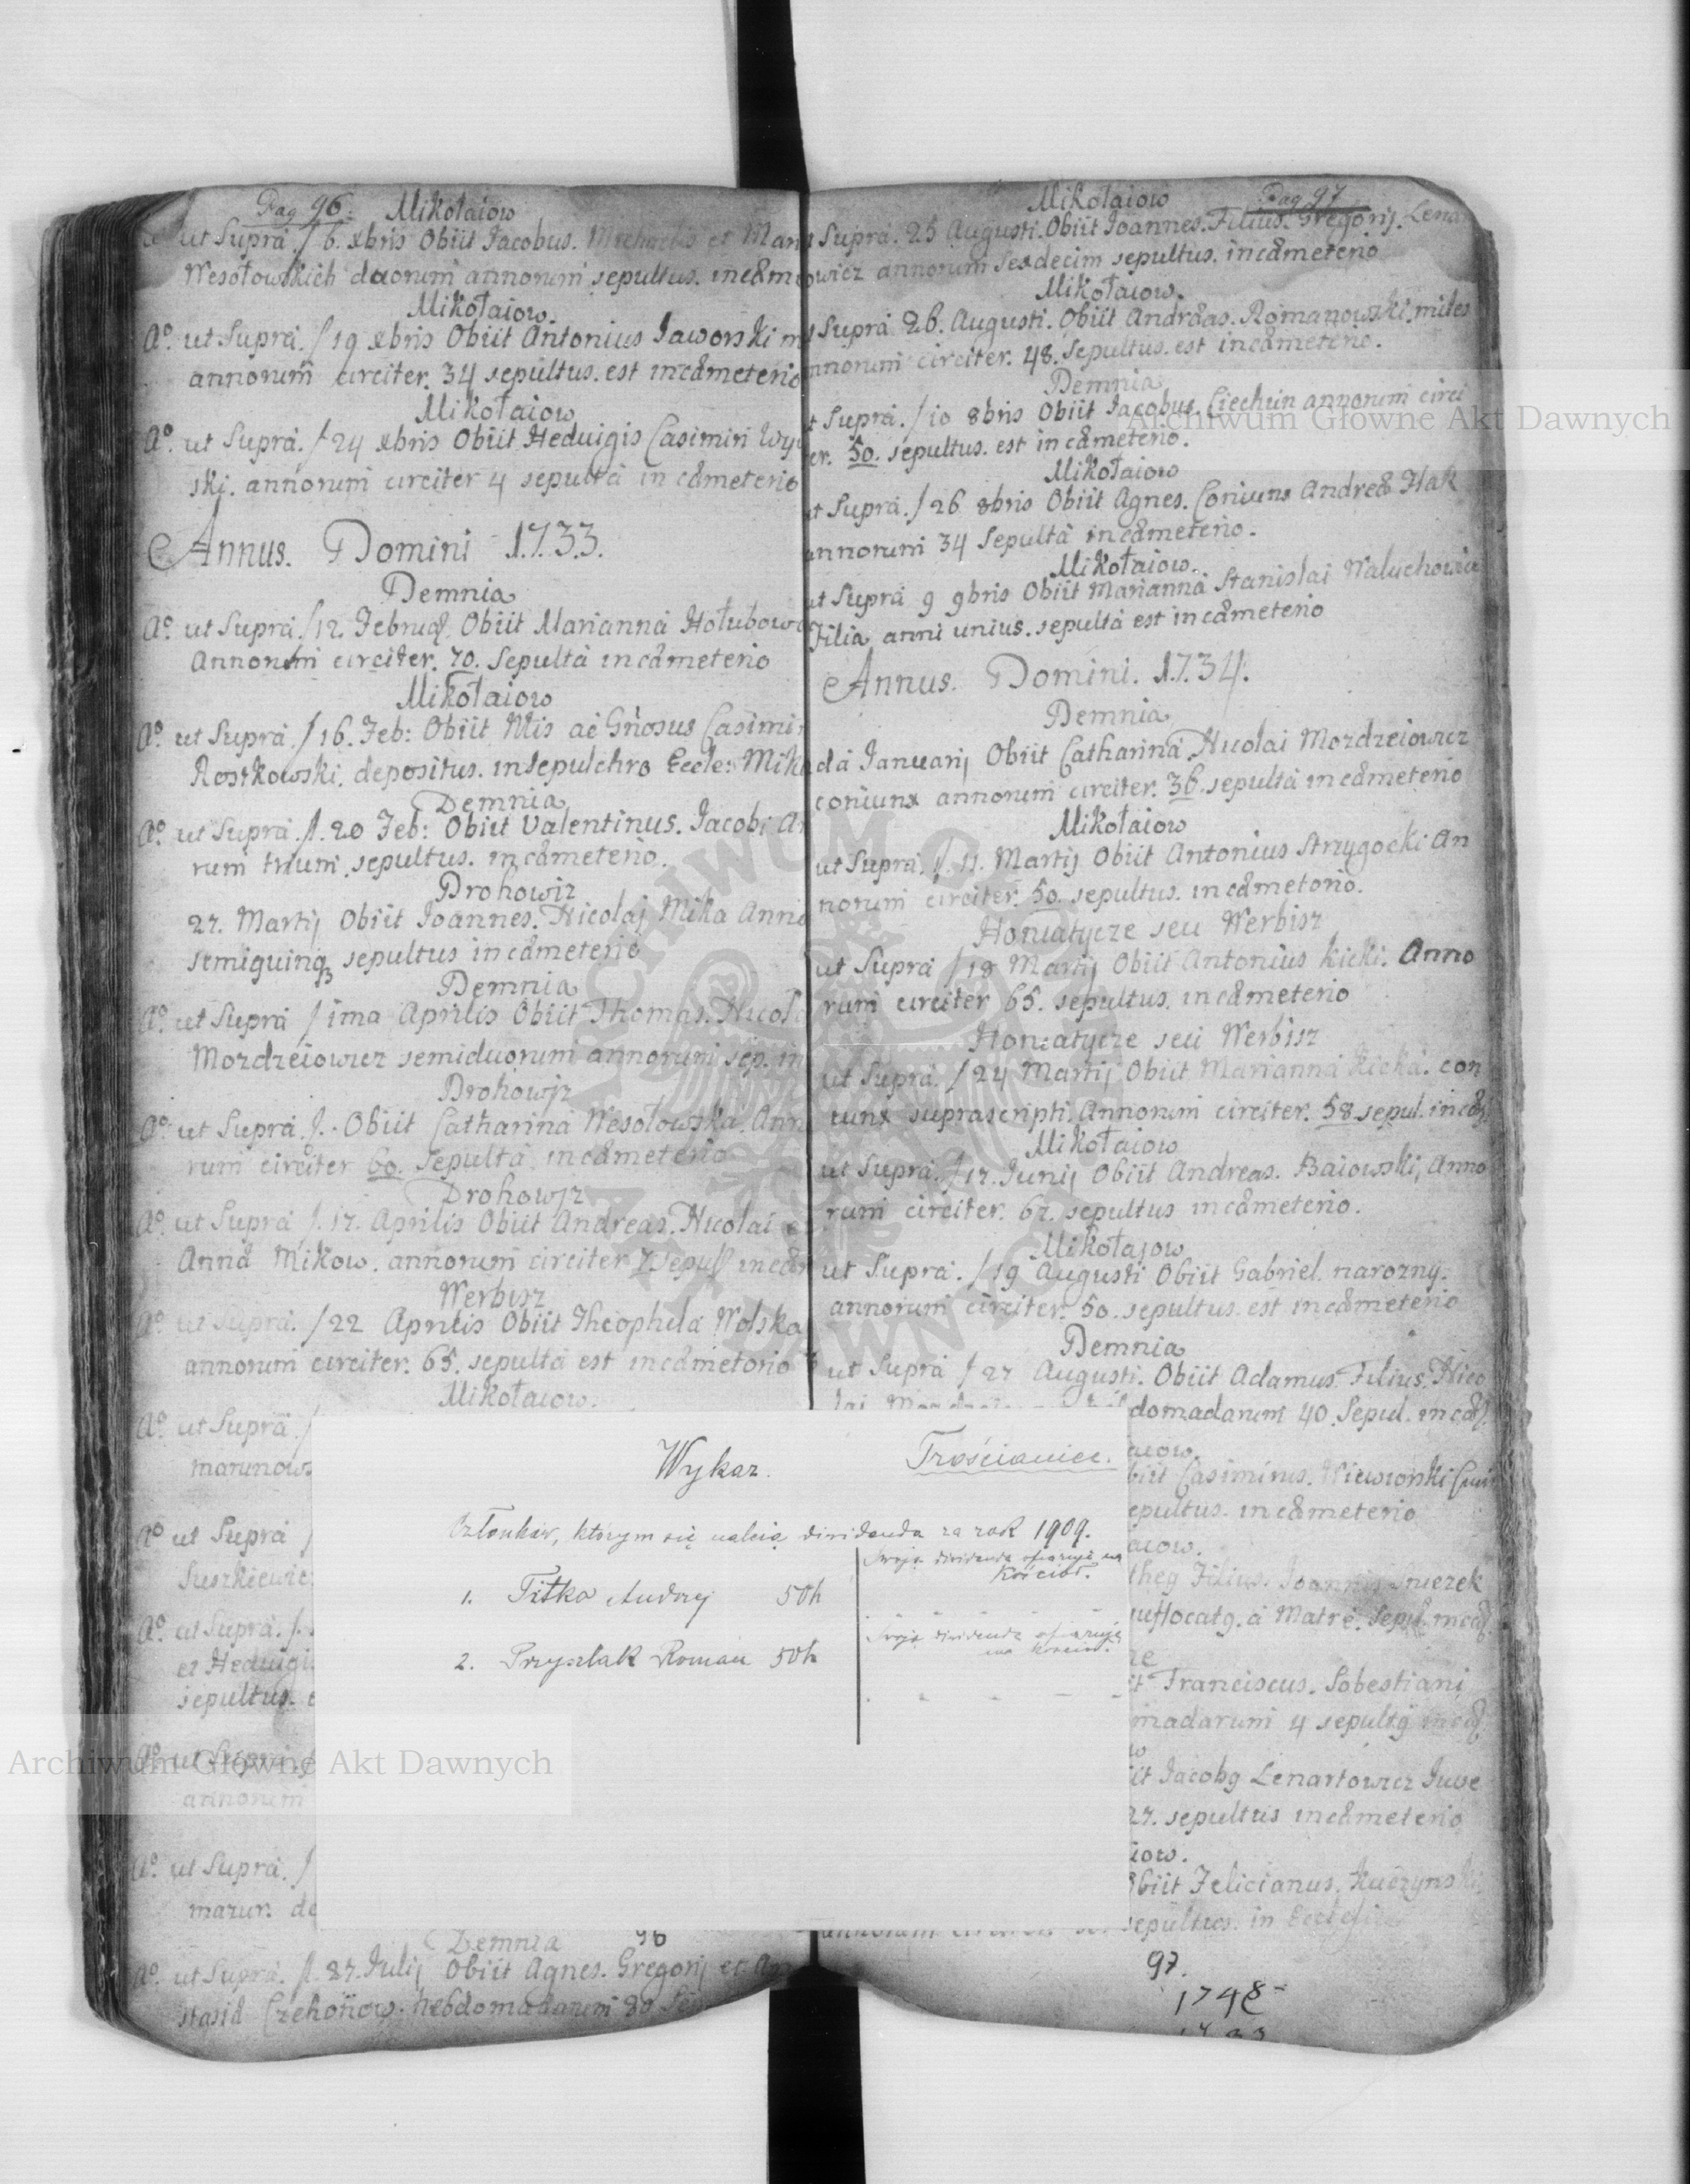 Pag 96. Mikołaiow
ut Supra. / 6. xbris Obiit Jacobus. Michaelis et Mari
Wesołowskich duorum annorum sepultus. in cæm
Mikołaiow.
Aº. ut Supra. / 19 xbris Obiit Antonius Jaworski m
annorum circiter. 34 sepultus. est in cæmeterio
Mikołaiow
Aº. ut Supra. / 24 xbris Obiit Heduigis Casimiri
ski. annorum circiter 4 sepulta in cæmeterio
Annus. Domini 1.7.3.3.
Demnia
Aº. ut Supra. / 12. Februaꝝ. Obiit Marianna Hołubow
Annorum circiter. 70. Sepulta in cæmeterio
Mikołaiow
Aº. ut Supra. / 16. Feb: Obiit Mis ac Gñosus Casimi
Rostkowski. depositus. in sepulchro Eccle: Mik
Demnia
Aº. ut Supra. /. 20 Feb: Obiit Valentinus. Jacobi An
rum trium. sepultus. in cæmeterio.
Drohowiz
27. Martij Obiit Joannes. Nicolai Mika Anno
semiquinq sepultus in cæmeterio
Demnia
Aº. ut Supra / ima Aprilis Obiit Thomas. Nicola
Mozdzeiowicz semiduorum annorum sep. in
Drohowjz
Aº. ut Supra. /. Obiit Catharina Wesołowska. Ann
rum circiter 60. Sepulta in cæmeterio
Drohowjz
Aº. ut Supra /. 17. Aprilis Obiit Andreas. Nicolai e
Annæ Mikow. annorum circiter 7 sepul in cæm
Werbisz
Aº. ut Supra. / 22 Aprilis Obiit Theophila Wolska
annorum circiter. 65. sepulta est in cæmetorio
Mikołaiow.
Aº. ut Supra. /
marunow
Aº ut Supra /
Suszkiewic
Aº. ut Supra. /.
et Heduigi
sepultus. e
Aº. ut Supra. /
annorum
Aº. ut Supra. /
mazur. de
Demnia 96
Aº. ut Supra. /. 27. Julij Obiit Agnes. Gregorij et An
stasiæ Czehoñow. hebdomadarum 80 Se
Mikołaiow Pag 97
Supra. 25 Augusti. Obiit Joannes. Filius. Gregorij. Lenar
owicz annorum Sexdecim sepultus. in cæmeterio
Mikołaiow.
Supra 26. Augusti. Obiit Andreas. Romanowski. miles
nnorum circiter. 48. Sepultus. est in cæmeterio.
Demnia
t Supra. / 10 8bris Obiit Jacobus. Ciechun annorum circi
er. 50. sepultus. est in cæmeterio.
Mikołaiow
ut Supra. / 26 8bris Obiit Agnes. Coniunx Andreæ Hak
annorum 34 Sepulta in cæmeterio.
Mikołaiow.
ut Supra 9 9bris Obiit Marianna Stanislai Waluchowicz
Filia anni unius. sepulta est in cæmeterio
Annus. Domini. 1.7.34.
Demnia
da Januarij Obiit Catharina Nicolai Mozdzeiowicz
coniunx annorum circiter. 36. sepulta in cæmeterio
Mikołaiow
ut Supra. /. 11. Martij Obiit Antonius Strzygocki An
norum circiter. 50. sepultus. in cæmetorio.
Honiatycze seu Werbisz
ut Supra / 18 Martij Obiit Antonius Kicki. Anno
rum circiter 65. sepultus. in cæmeterio
Honiatycze seu Werbisz
ut Supra. / 24 Martij Obiit Marianna Kicka. con
iunx suprascripti. Annorum circiter. 58. sepul. in cæ
Mikołaiow
ut Supra. / 17. Junij Obiit Andreas. Baiowski, Anno
rum circiter. 67. sepultus in cæmeterio.
Mikołajow
ut Supra. / 19 Augusti Obiit Gabriel. narozny.
annorum circiter. 50. sepultus. est in cæmeterio
Demnia
ut Supra / 27 Augusti. Obiit Adamus. Filius. Nico
domadarum 40. Sepul. in cæ
aiow.
biit Casimirus. Niewionki
epultus. in cæmeterio
aiow.
Filius. Joannis Sniezek
suffocatg. à Matre. Sepul. in cæ
ze
it Franciscus. Sobestiani
madarum 4 sepultg in cæ
w
it Jacobg Lenartowicz Juve
27. sepultus in cæmeterio
iow.
biit Felicianus. Kuczynski
sepultus. in Ecclesi
97.
1748
Wykaz. Trościaniec.
Członków, którym się należa dividenda za rok 1909.
Swoją dividendę ofiaruje na
Kościół.
1. Fitko Andrzej 50h
Swoją dividendę ofiaruje
na kościół.
2. Przyszlak Roman 50h
Archiwum Główne Akt Dawnych
Archiwum Główne Akt Dawnych
ARCHIWUM GŁÓWNE AKT DAWNYCH